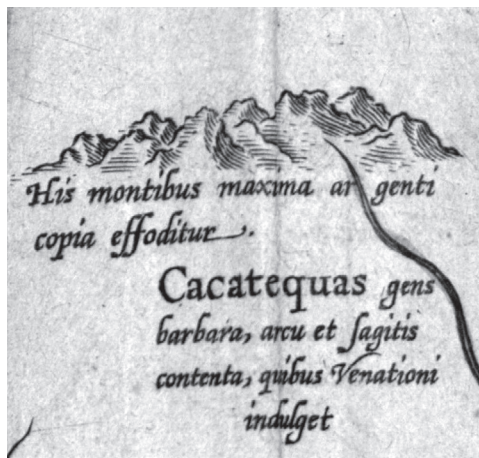 His montibus maxima ar genti
copia effoditur.
Cacatequas gens
barbara, arcu et ſagitis
contenta, quibus Venationi
indulget